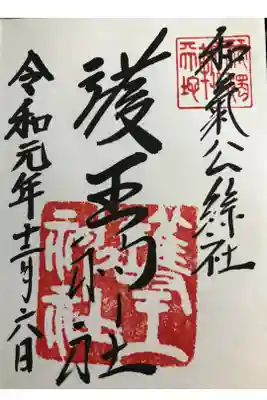 和氣公綜社
護王神社
令和元年十一月六日
護王
神社